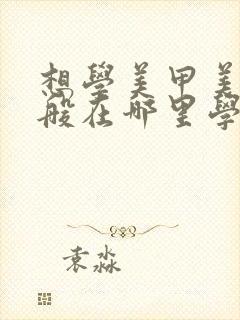 想學美甲美
般在哪里學
袁淼